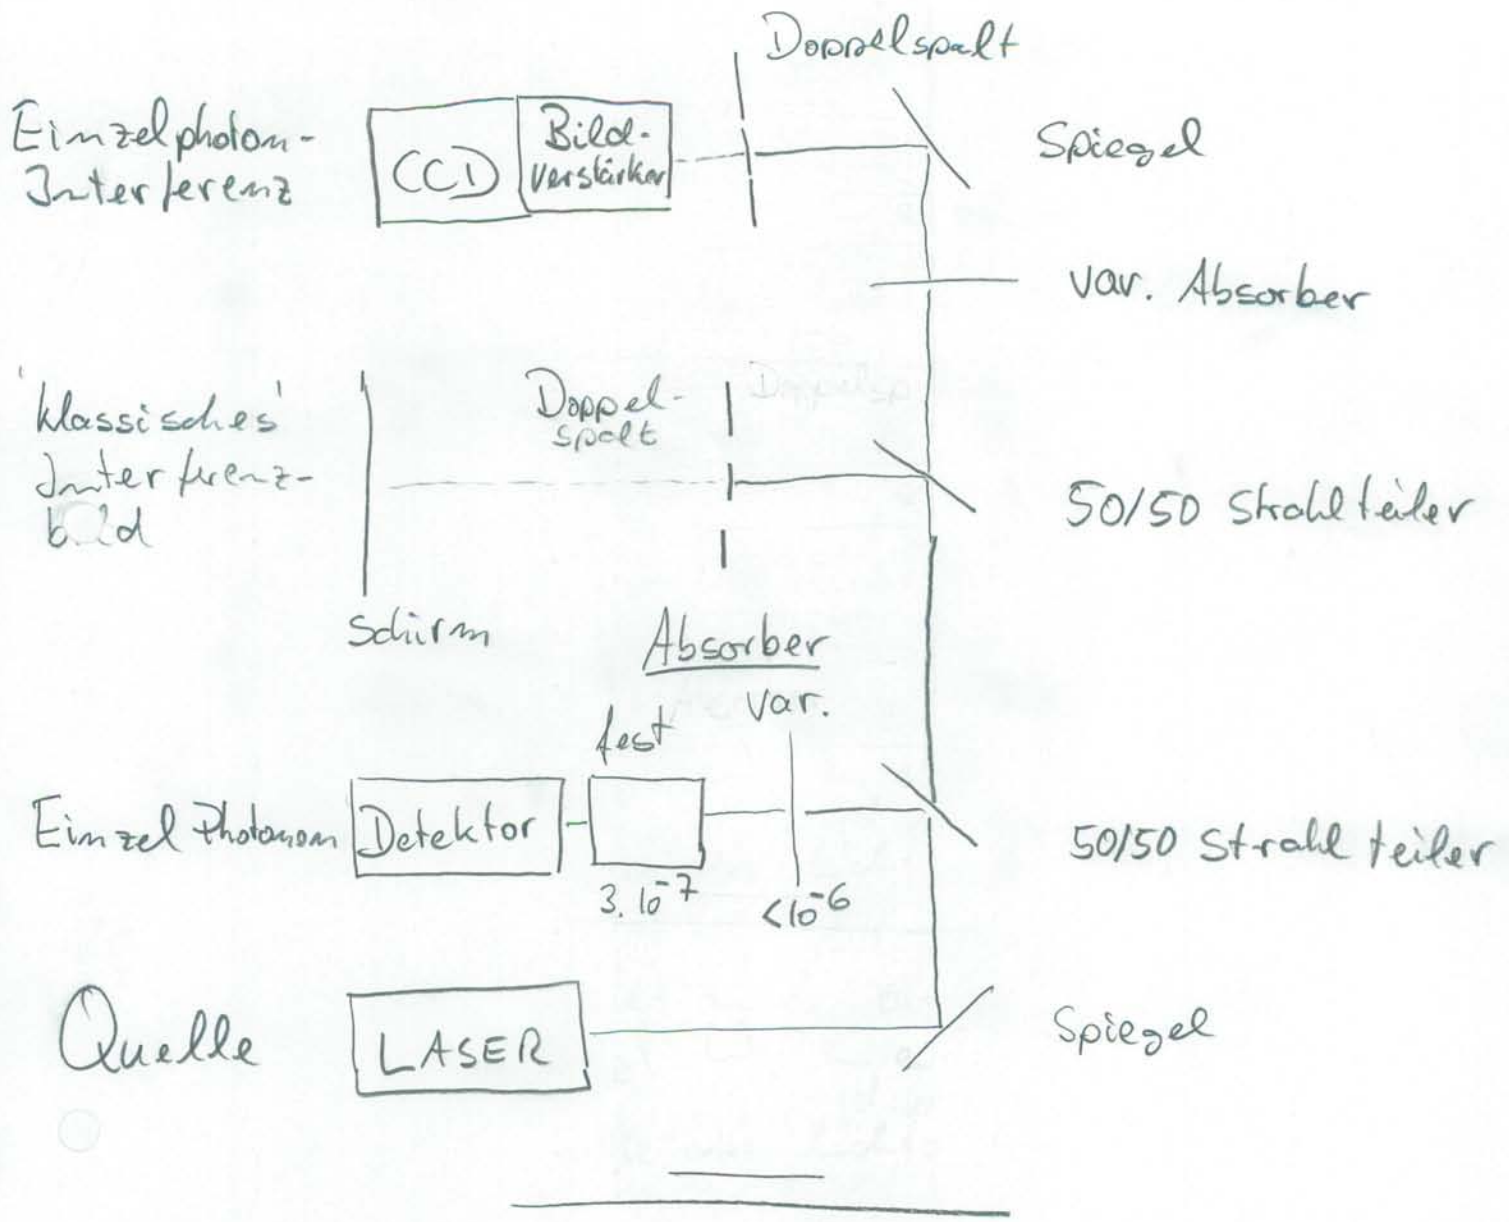 Doppelspalt
Einzelphoton-
Interferenz
CCD
Bild-
verstärker
Spiegel
var. Absorber
'klassisches'
Interferenz-
bild
Doppel-
spalt
50/50 Strahlteiler
Schirm
Absorber
fest
var.
Einzel Photonen
Detektor
3·10⁻⁷
<10⁻⁶
50/50 Strahlteiler
Quelle
LASER
Spiegel